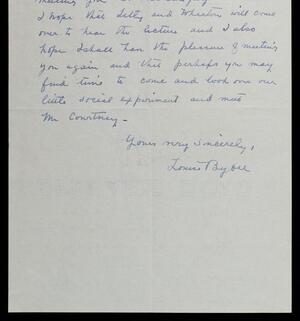 I hope that Selly and Wharton will come
over to hear the lecture and I also
hope I shall have the pleasure of meeting
you again and that perhaps you may
find time to come and look over our
little social experiment and meet
Mr Courtney -
Yours very sincerely,
Louise Bybee